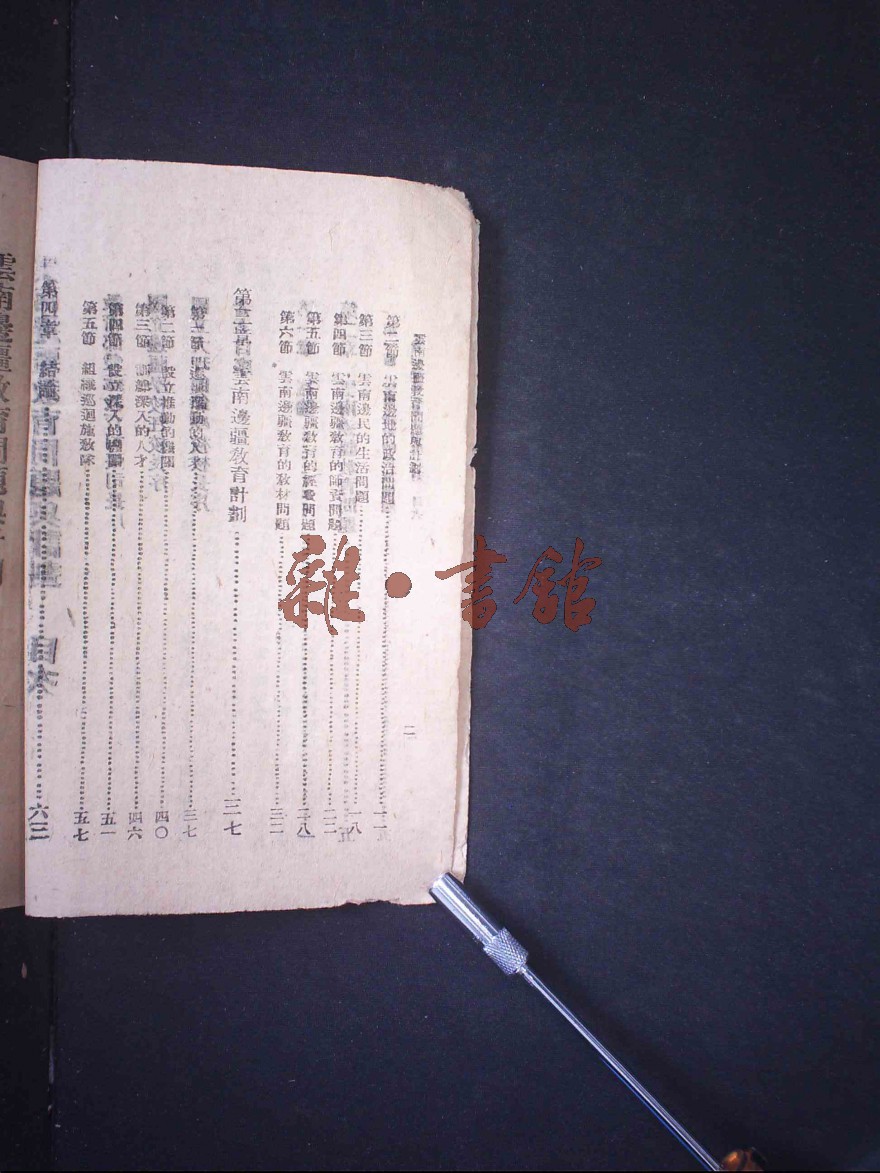 雲南邊疆教育問題與計劃 目次
二
第二節 雲南邊地的政治問題 一一
第三節 雲南邊民的生活問題 一八
第四節 雲南邊疆教育的師資問題 二二
第五節 雲南邊疆教育的經費問題 二八
第六節 雲南邊疆教育的教材問題 三二
第三章 雲南邊疆教育計劃 三七
第一節 推動的人才 三七
第二節 設立推動的機關 四〇
第三節 訓練深入的人才 四六
第四節 設立深入的機關 五一
第五節 組織巡迴施教隊 五七
第四章 結論 六三
雲南邊疆教育問題
雜·書館